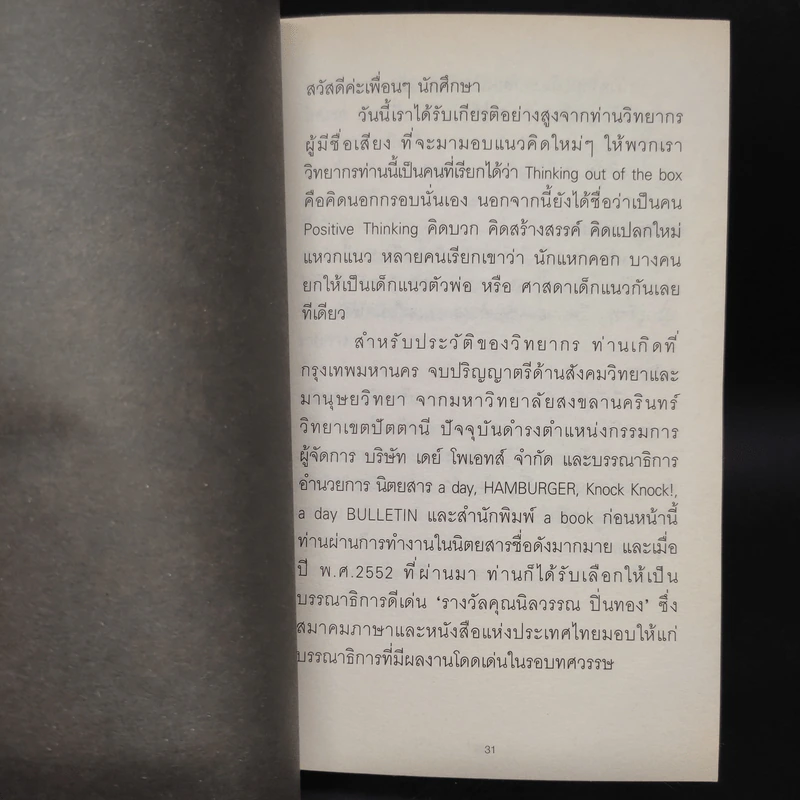 สวัสดีค่ะเพื่อนๆ นักศึกษา
วันนี้เราได้รับเกียรติอย่างสูงจากท่านวิทยากร
ผู้มีชื่อเสียง ที่จะมามอบแนวคิดใหม่ๆ ให้พวกเรา
วิทยากรท่านนี้เป็นคนที่เรียกได้ว่า Thinking out of the box
คือคิดนอกกรอบนั่นเอง นอกจากนี้ยังได้ชื่อว่าเป็นคน
Positive Thinking คิดบวก คิดสร้างสรรค์ คิดแปลกใหม่
แหวกแนว หลายคนเรียกเขาว่า นักแหกคอก บางคน
ยกให้เป็นเด็กแนวตัวพ่อ หรือ ศาสดาเด็กแนวกันเลย
ทีเดียว
สำหรับประวัติของวิทยากร ท่านเกิดที่
กรุงเทพมหานคร จบปริญญาตรีด้านสังคมวิทยาและ
มานุษยวิทยา จากมหาวิทยาลัยสงขลานครินทร์
วิทยาเขตปัตตานี ปัจจุบันดำรงตำแหน่งกรรมการ
ผู้จัดการ บริษัท เดย์ โพเอทส์ จำกัด และบรรณาธิการ
อำนวยการ นิตยสาร a day, HAMBURGER, Knock Knock!,
a day BULLETIN และสำนักพิมพ์ a book ก่อนหน้านี้
ท่านผ่านการทำงานในนิตยสารชื่อดังมากมาย และเมื่อ
ปี พ.ศ.2552 ที่ผ่านมา ท่านก็ได้รับเลือกให้เป็น
บรรณาธิการดีเด่น ‘รางวัลคุณนิลวรรณ ปิ่นทอง’ ซึ่ง
สมาคมภาษาและหนังสือแห่งประเทศไทยมอบให้แก่
บรรณาธิการที่มีผลงานโดดเด่นในรอบทศวรรษ
31